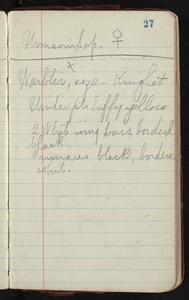 27
Warbler, size - Kinglet
Under pts buffy yellow
2 white wing bars, bordered
black.
Primaries black, bordered